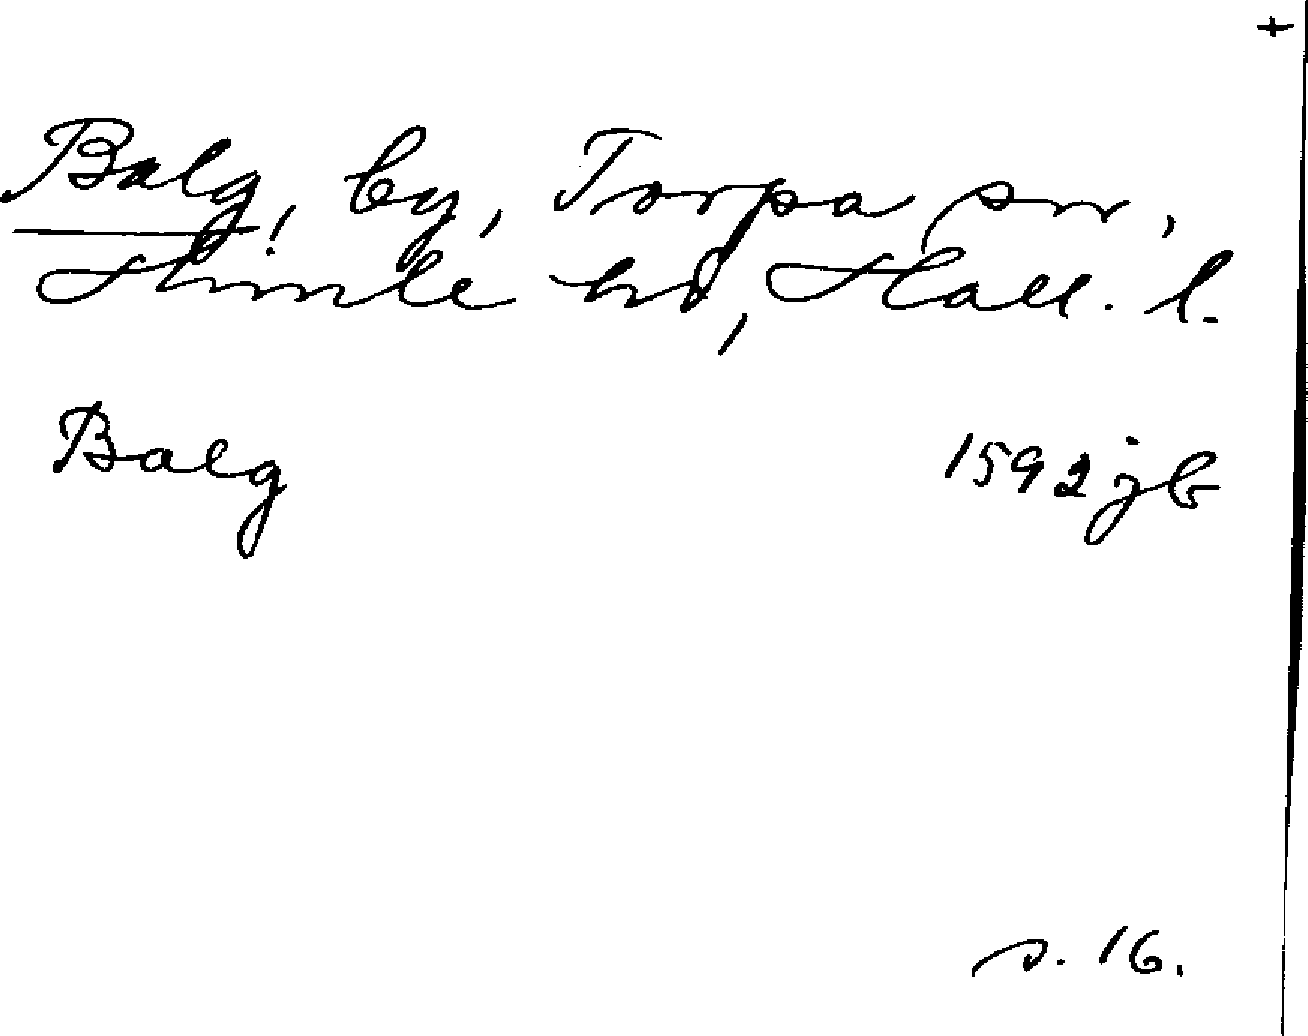 +
Balg, by, Torpa sn,
Himle hd, Hall. l.
Balg 1592 jb
s. 16.